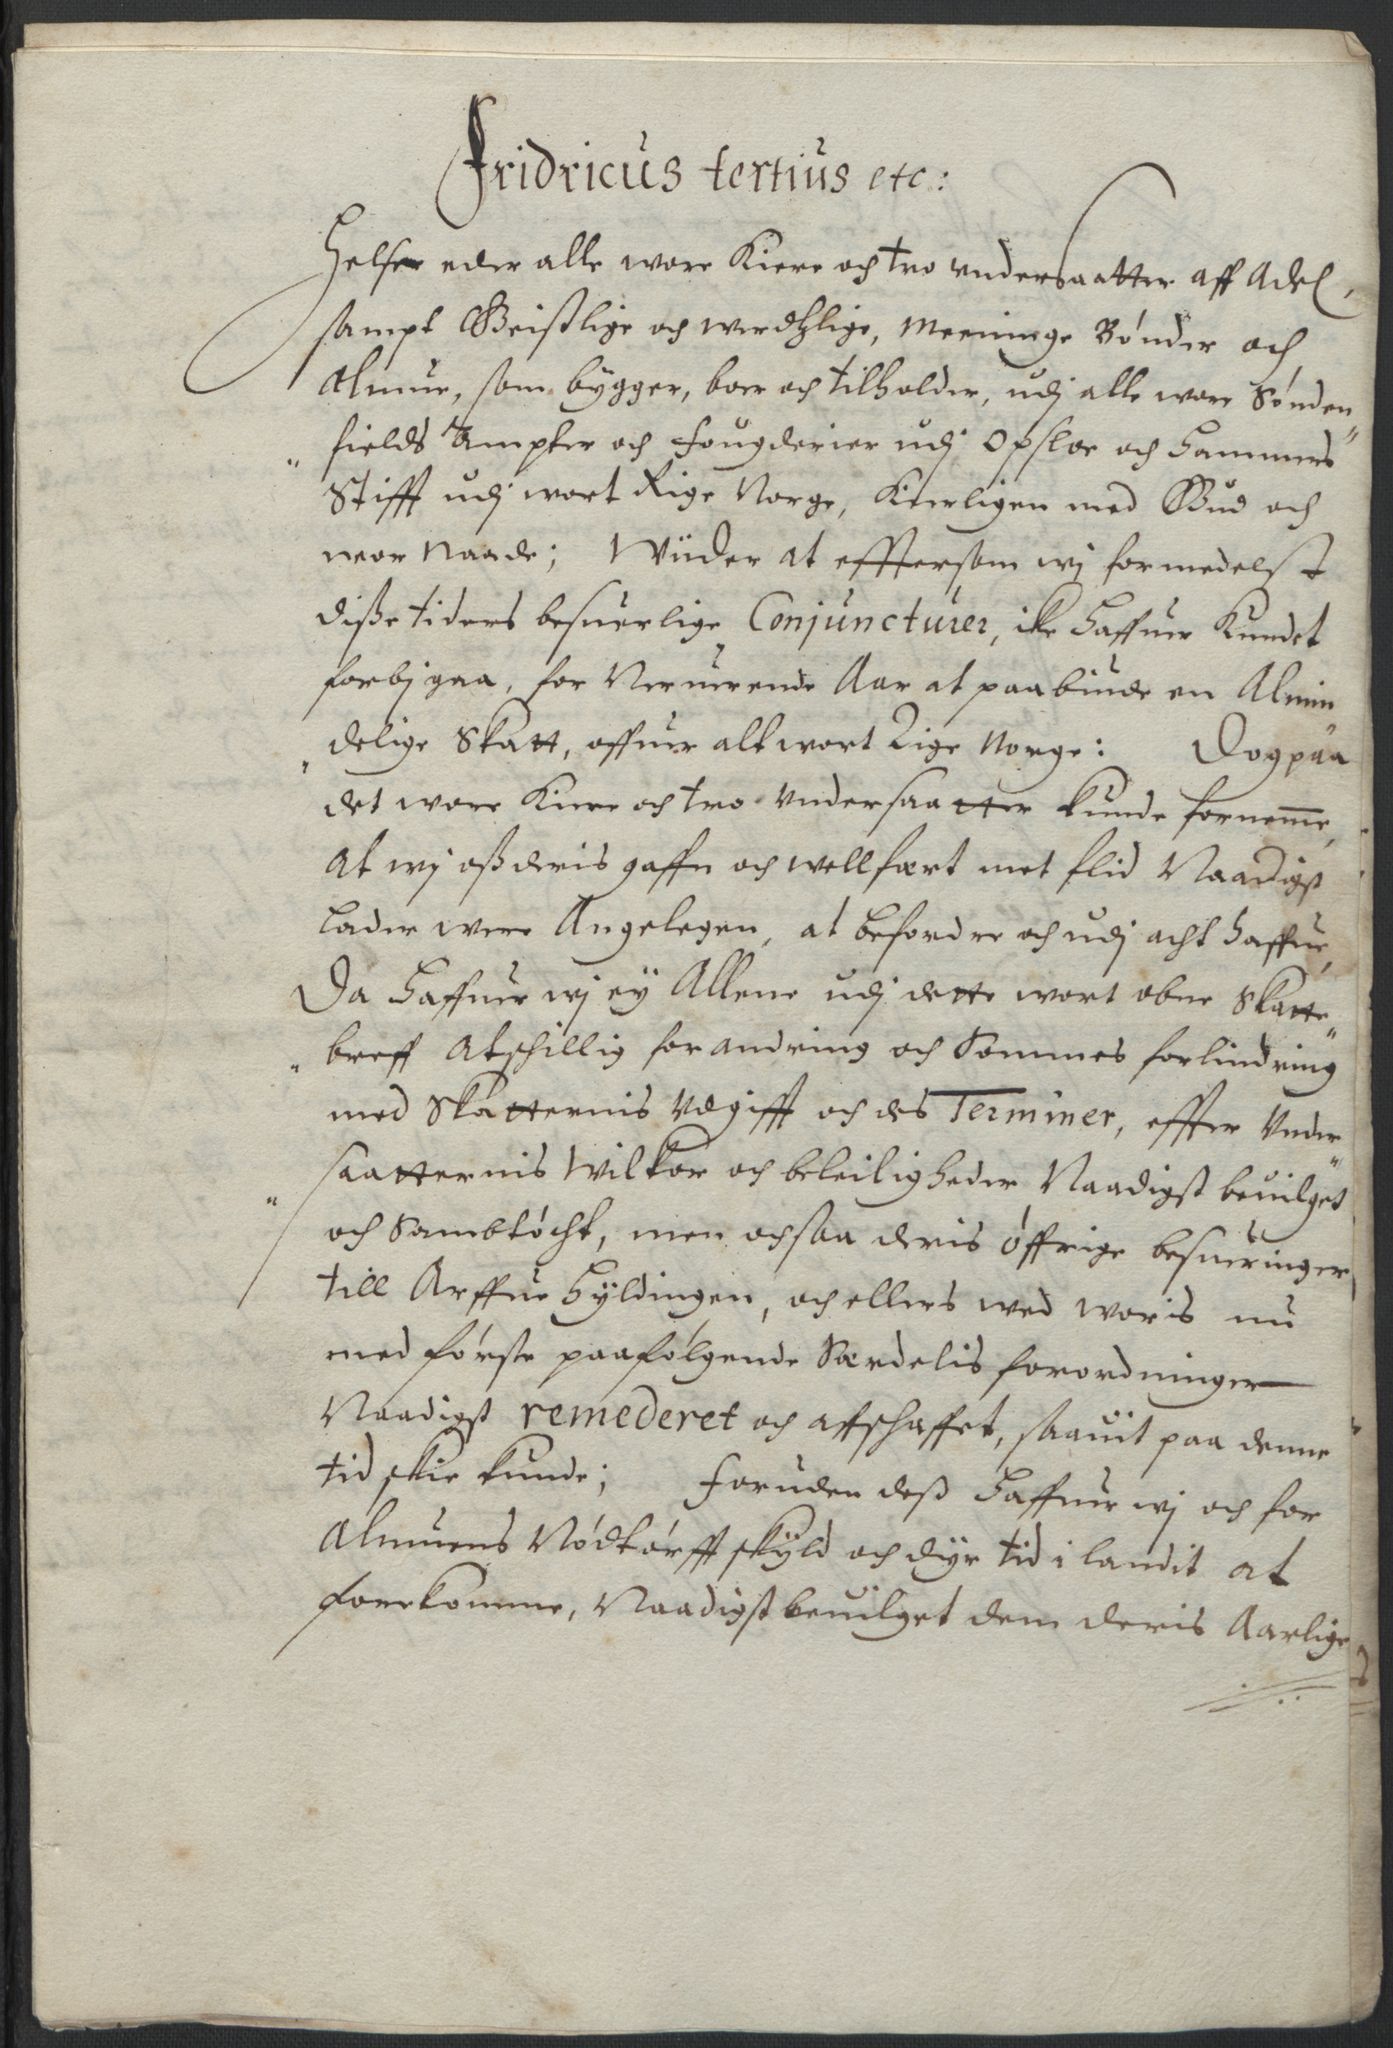 Fridricus tertius etc:
Helser eder alle wore Kiere och tro vndersaatter aff Adel,
sampt Geistlige och werdslige, Meeninge Bønder och
Almue, som bygger, boer och tilholder, udj alle wore Sønden„
„fields Ampter och fougderier udj Opsloe och Hammers
Stifft udj wort Rige Norge, Kierligen med Gud och
wor Naade; Wiider at efftersom wj formedelst
disse tiders besuerlige Conjuncturer, ike Haffuer Kundet
forbj gaa, for Neruerende Aar at paabiude en Almin„
„delige Skatt, offuer alt wort Rige Norge: Dog paa
det wore Kiere och tro vndersaatter kunde fornemme,
At wj oss deris gaffn och wellfart met flid Naadigst
Lader were Angelegen, at befordre och udj acht haffue,
Da Haffuer wj ey Allene udj dette wort obne Skatte„
„breff Atschillig forandring och Sommes forlindring
med Skatternis Vdgifft och des Terminer, effter Vnder„
„saatternis Wilkor och beleiligheder Naadigst beuilget
och Sambtøcht, men ochsaa deris øffrige besueringer
till Arffue Hyldingen, och ellers wed woris nu
med første paafølgende Særdelis forordninger
Naadigst remederet och affschaffet, saauit paa denne
tid skie kunde; Foruden dess Haffuer wj och for
Almuens Nødtørfft skyld och dyr tid i landit at
forekomme, Naadigst beuilget dem deris Aarlige